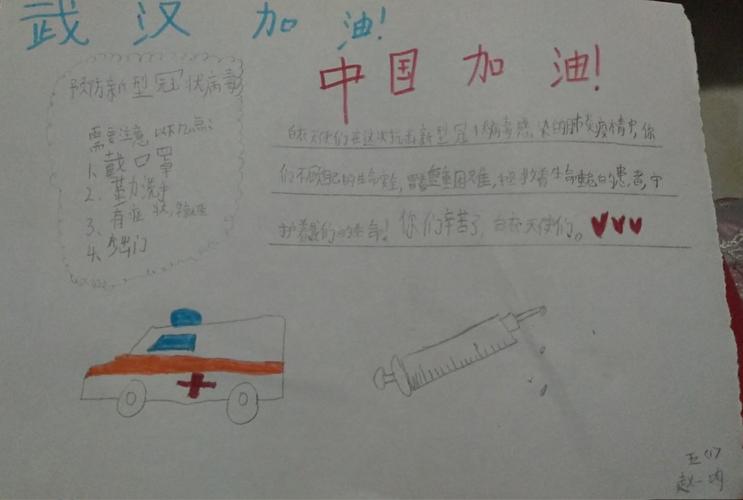 武汉加油!
中国加油!
预防新型冠状病毒
需要注意以下几点:
1、戴口罩
2、勤洗手
3、有症状,
4、少出门
白衣天使们在这次抗击新型冠状病毒感染的肺炎疫情中,你
们不顾自己的生命危险,冒着重重困难,拯救着生命垂危的患者,守
护着我们的生命!你们辛苦了,白衣天使们。
五(1)
赵一